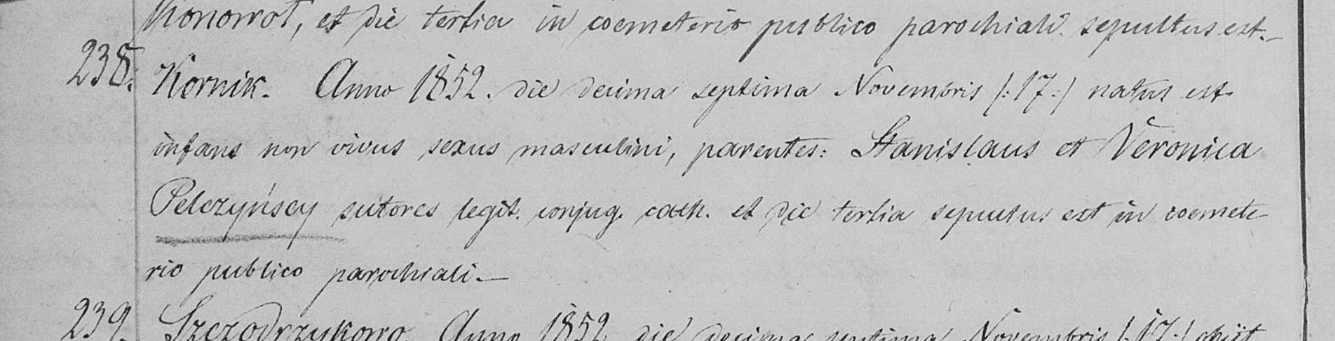 Konowoł, et die tertia in coemeterio publico parochiali sepultus est.—
238. Kornik. Anno 1852. die decima septima Novembris /:17:/ natus est
infans non vivus sexus masculini, parentes: Stanislaus et Veronica
Pelczyńscy sutores legit. conjug. cath. et die tertia sepultus est in coemete-
rio publico parochiali.—
239. Szczodrzykowo. Anno 1852 die decima septima Novembris /:17:/ obiit